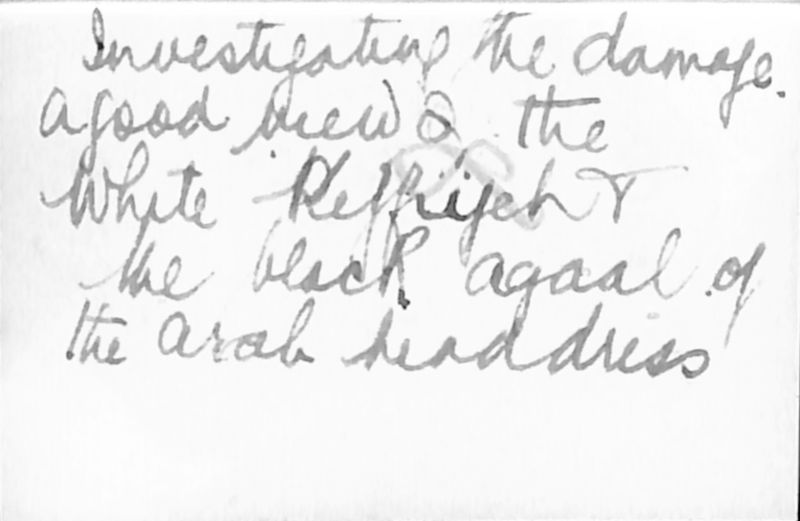 Investigating the damage.
a good view of the
White Keffiyeh &
the black agaal of
the arab headdress